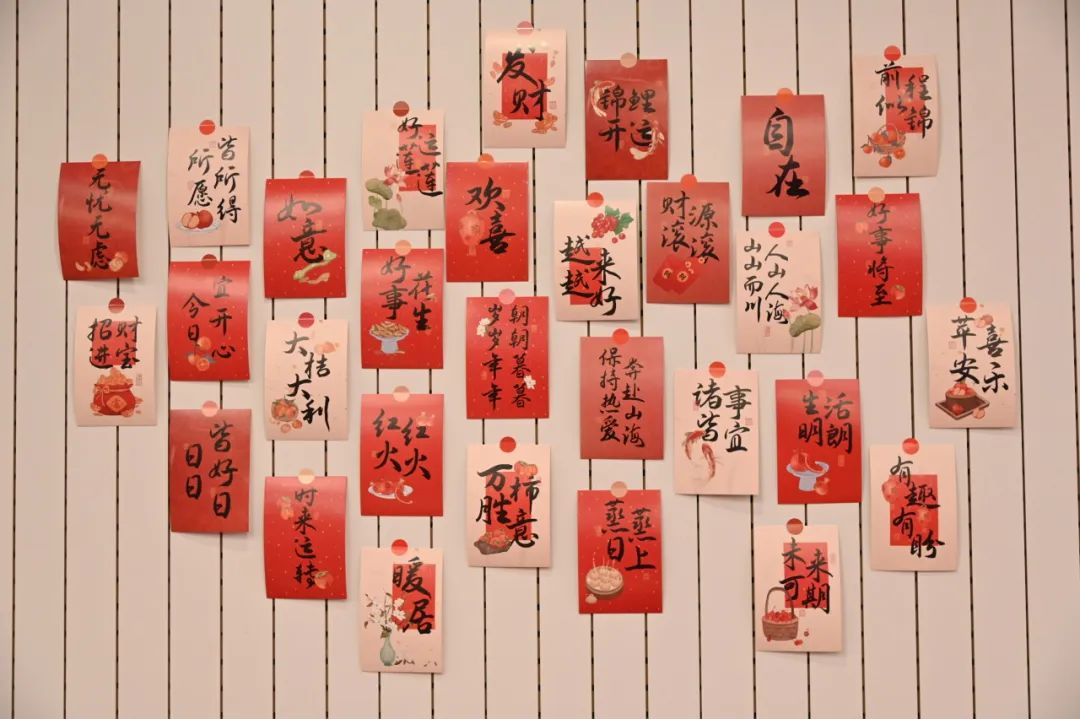 发财
锦鲤
开运
自在
前程
似锦
无忧无虑
所愿
皆所得
如意
好运
莲莲
欢喜
越来
越好
财源
滚滚
人山人海
山山而川
好事将至
招财
进宝
今日
宜开心
大桔
大利
好事
花生
朝朝暮暮
岁岁年年
保持热爱
奔赴山海
诸事
皆宜
生活
明朗
苹安
喜乐
日日
皆好日
时来运转
红红
火火
万柿
胜意
蒸蒸
日上
有趣
有盼
暖居
未来
可期